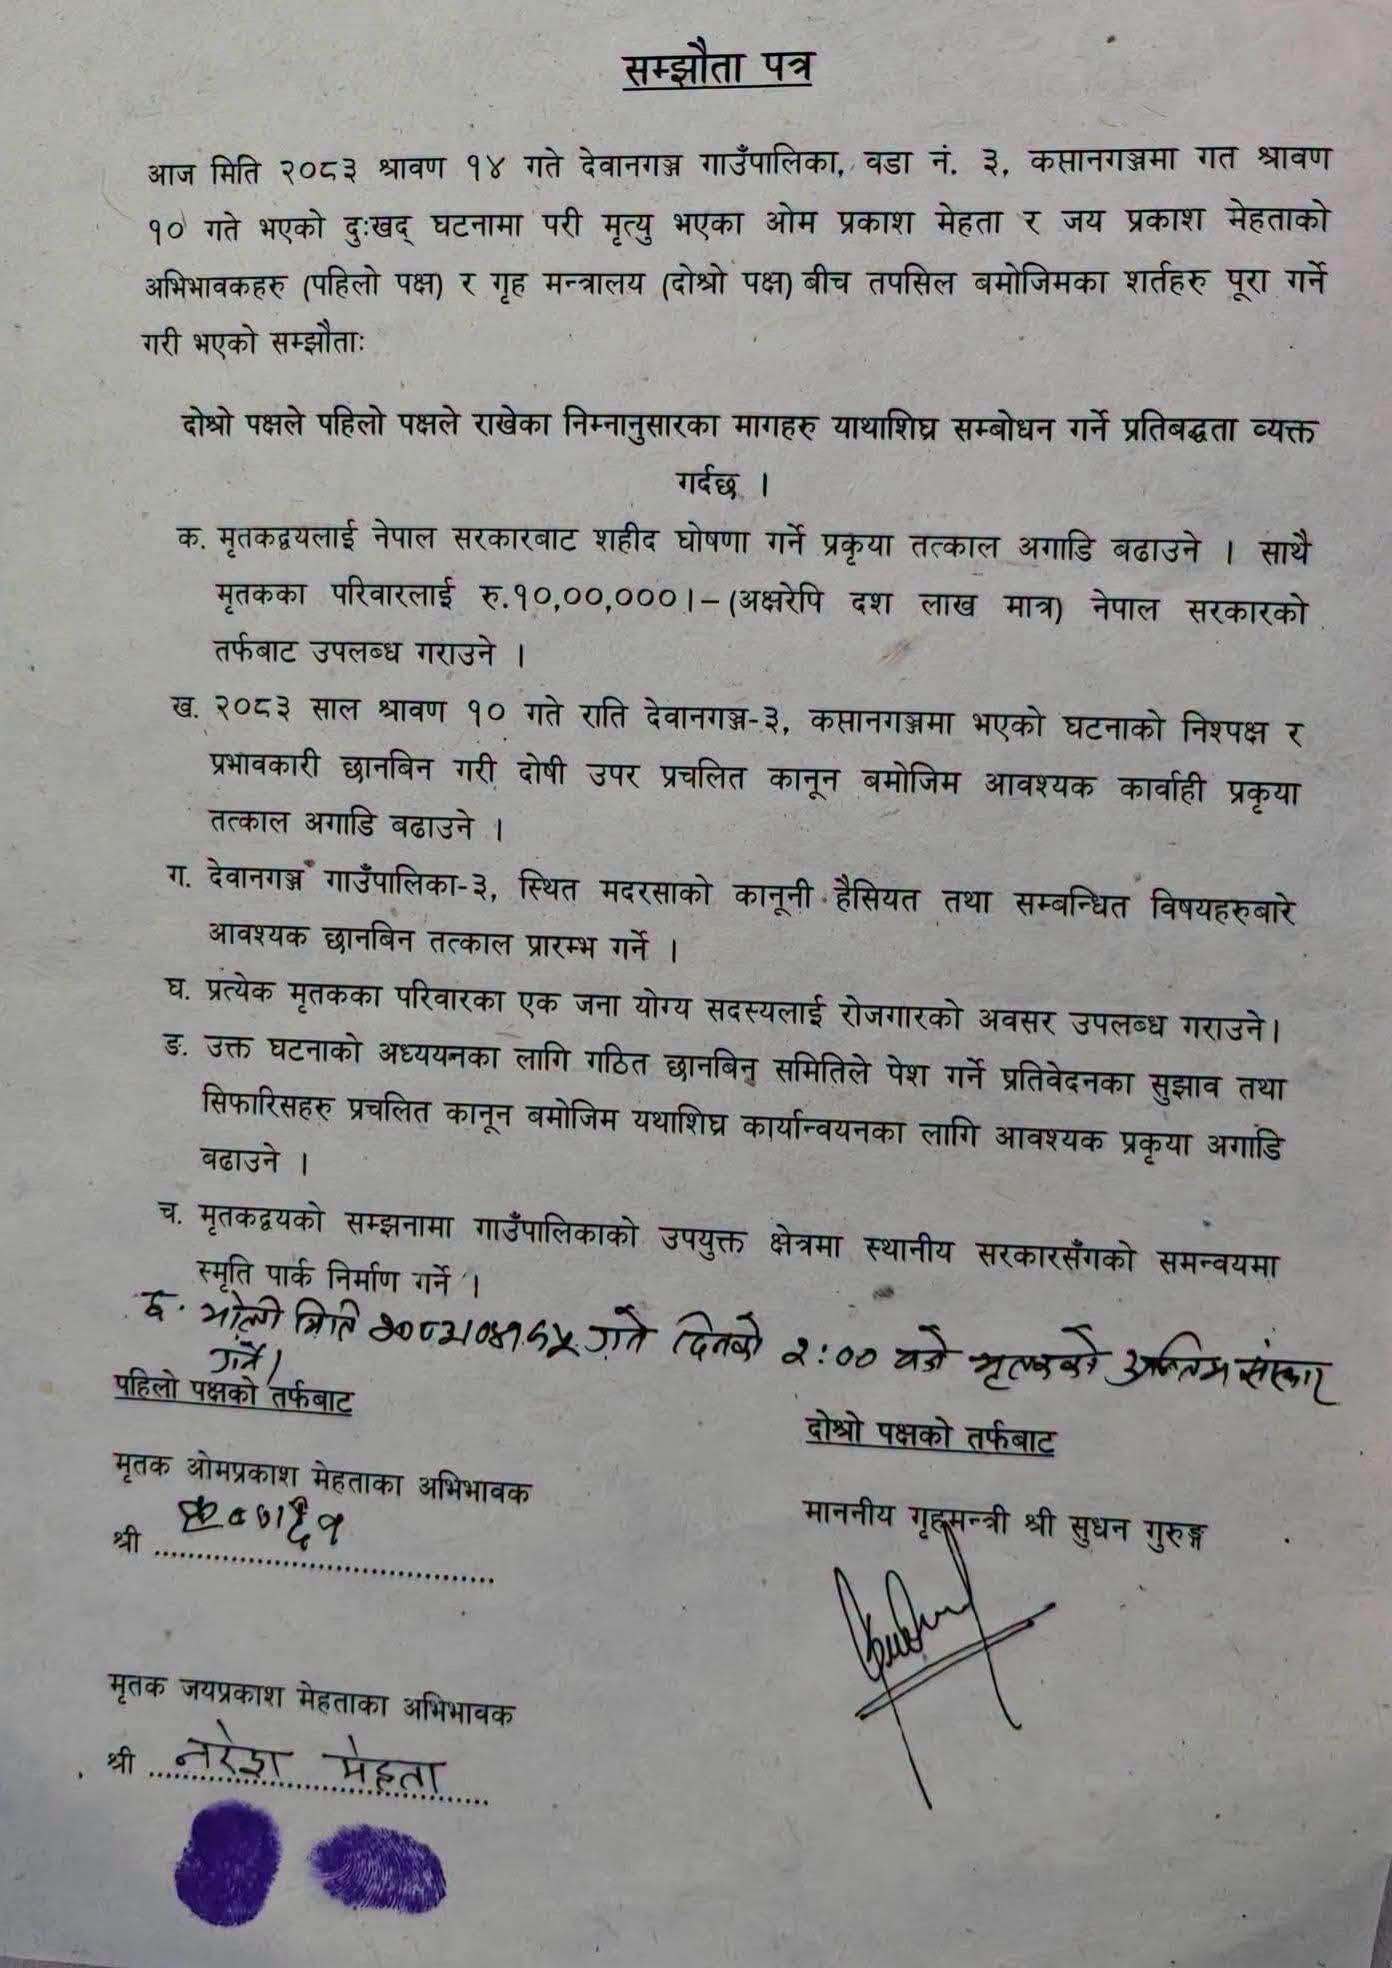 सम्झौता पत्र
आज मिति २०८३ श्रावण १४ गते देवानगञ्ज गाउँपालिका, वडा नं. ३, कप्तानगञ्जमा गत श्रावण
१० गते भएको दुःखद् घटनामा परी मृत्यु भएका ओम प्रकाश मेहता र जय प्रकाश मेहताको
अभिभावकहरु (पहिलो पक्ष) र गृह मन्त्रालय (दोश्रो पक्ष) बीच तपसिल बमोजिमका शर्तहरु पूरा गर्ने
गरी भएको सम्झौताः
दोश्रो पक्षले पहिलो पक्षले राखेका निम्नानुसारका मागहरु याथाशिघ्र सम्बोधन गर्ने प्रतिबद्धता व्यक्त
गर्दछ ।
क. मृतकद्वयलाई नेपाल सरकारबाट शहीद घोषणा गर्ने प्रकृया तत्काल अगाडि बढाउने । साथै
मृतकका परिवारलाई रु.१०,००,०००।– (अक्षरेपि दश लाख मात्र) नेपाल सरकारको
तर्फबाट उपलब्ध गराउने ।
ख. २०८३ साल श्रावण १० गते राति देवानगञ्ज-३, कप्तानगञ्जमा भएको घटनाको निश्पक्ष र
प्रभावकारी छानबिन गरी दोषी उपर प्रचलित कानून बमोजिम आवश्यक कार्वाही प्रकृया
तत्काल अगाडि बढाउने ।
ग. देवानगञ्ज गाउँपालिका-३, स्थित मदरसाको कानूनी हैसियत तथा सम्बन्धित विषयहरुबारे
आवश्यक छानबिन तत्काल प्रारम्भ गर्ने ।
घ. प्रत्येक मृतकका परिवारका एक जना योग्य सदस्यलाई रोजगारको अवसर उपलब्ध गराउने।
ङ. उक्त घटनाको अध्ययनका लागि गठित छानबिन समितिले पेश गर्ने प्रतिवेदनका सुझाव तथा
सिफारिसहरु प्रचलित कानून बमोजिम यथाशिघ्र कार्यान्वयनका लागि आवश्यक प्रकृया अगाडि
बढाउने ।
च. मृतकद्वयको सम्झनामा गाउँपालिकाको उपयुक्त क्षेत्रमा स्थानीय सरकारसँगको समन्वयमा
स्मृति पार्क निर्माण गर्ने ।
छ. भोली मिति गते दिनको २:०० बजे मृतकको अन्तिम संस्कार
गर्ने।
पहिलो पक्षको तर्फबाट
दोश्रो पक्षको तर्फबाट
मृतक ओमप्रकाश मेहताका अभिभावक
श्री
माननीय गृहमन्त्री श्री सुधन गुरुङ्ग
मृतक जयप्रकाश मेहताका अभिभावक
श्री नरेश मेहता